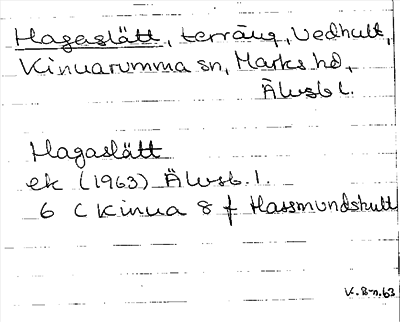 Hagaslätt, terräng, Vedhult,
Kinnarumma sn, Marks hd,
Älvsb l.
Hagaslätt
ek (1963) Älvsb. l.
6 C Kinna 8 f Hassmundshult
V. E-n. 63